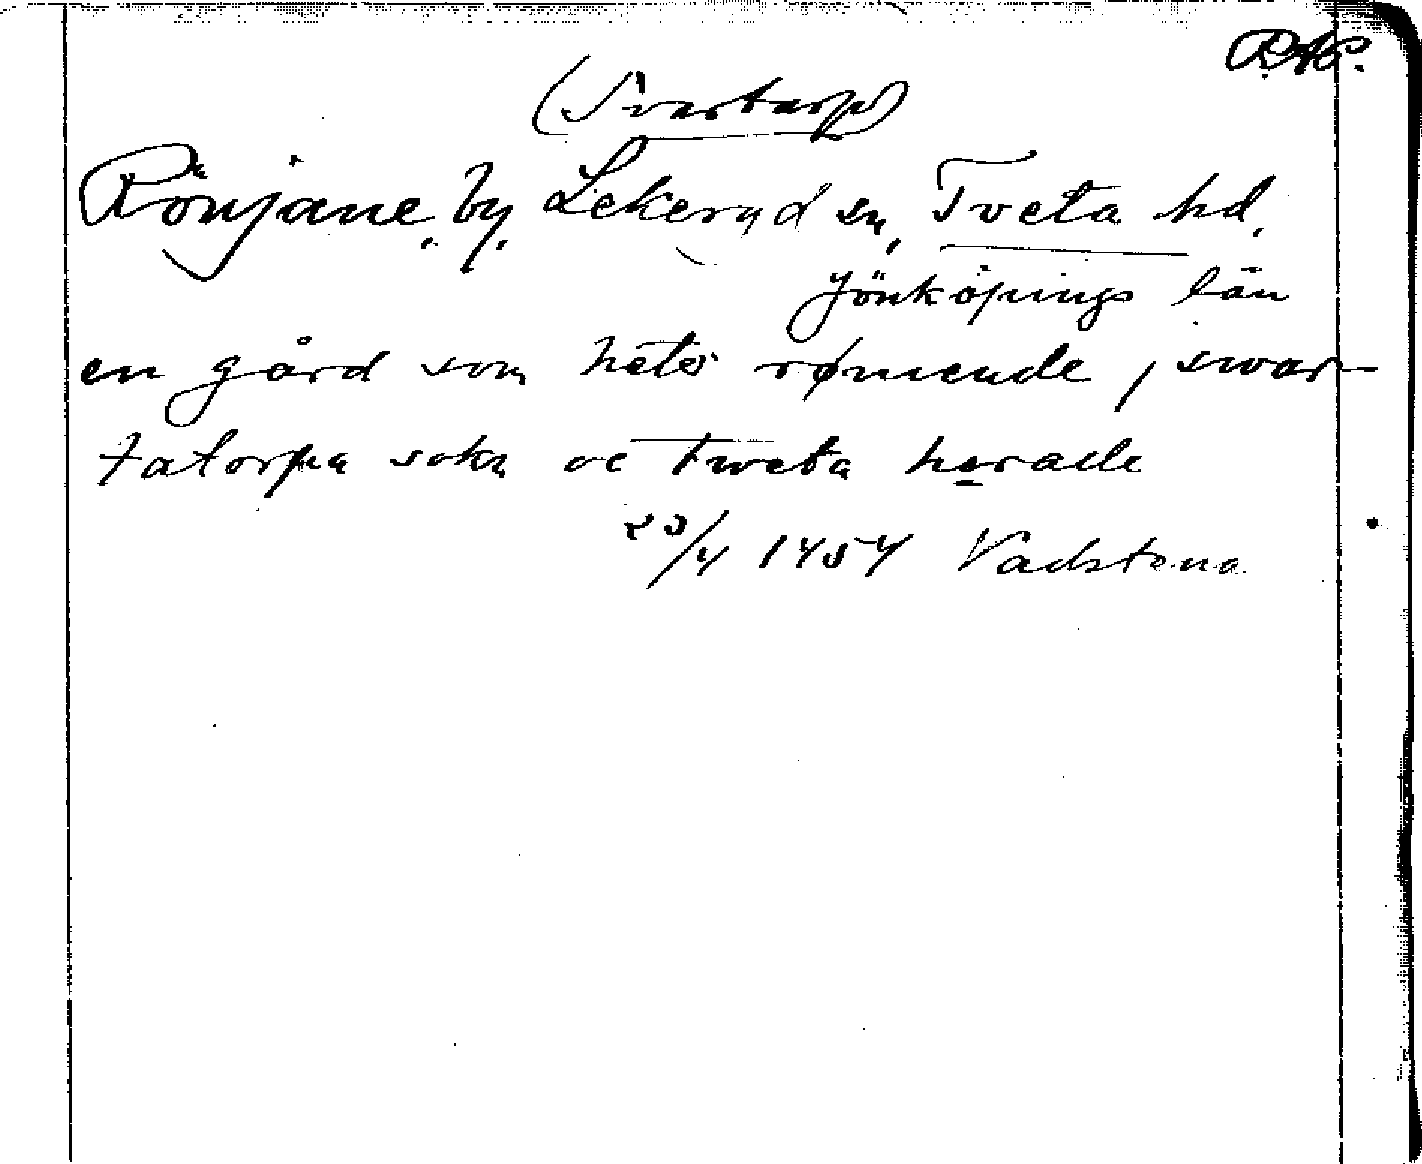 R.A.P.
(Svartarp)
Rönjane, by, Lekeryd sn, Tveta hd,
Jönköpings län
en gård som heter rømende, i swar-
tatorpa sokn oc Tweta hærade
23/4 1454 Vadstena